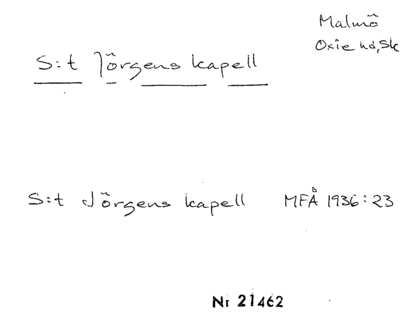 Malmö
Oxie hd, Sk
S:t Jörgens kapell
S:t Jörgens kapell MFÅ 1936:23
Nr 21462